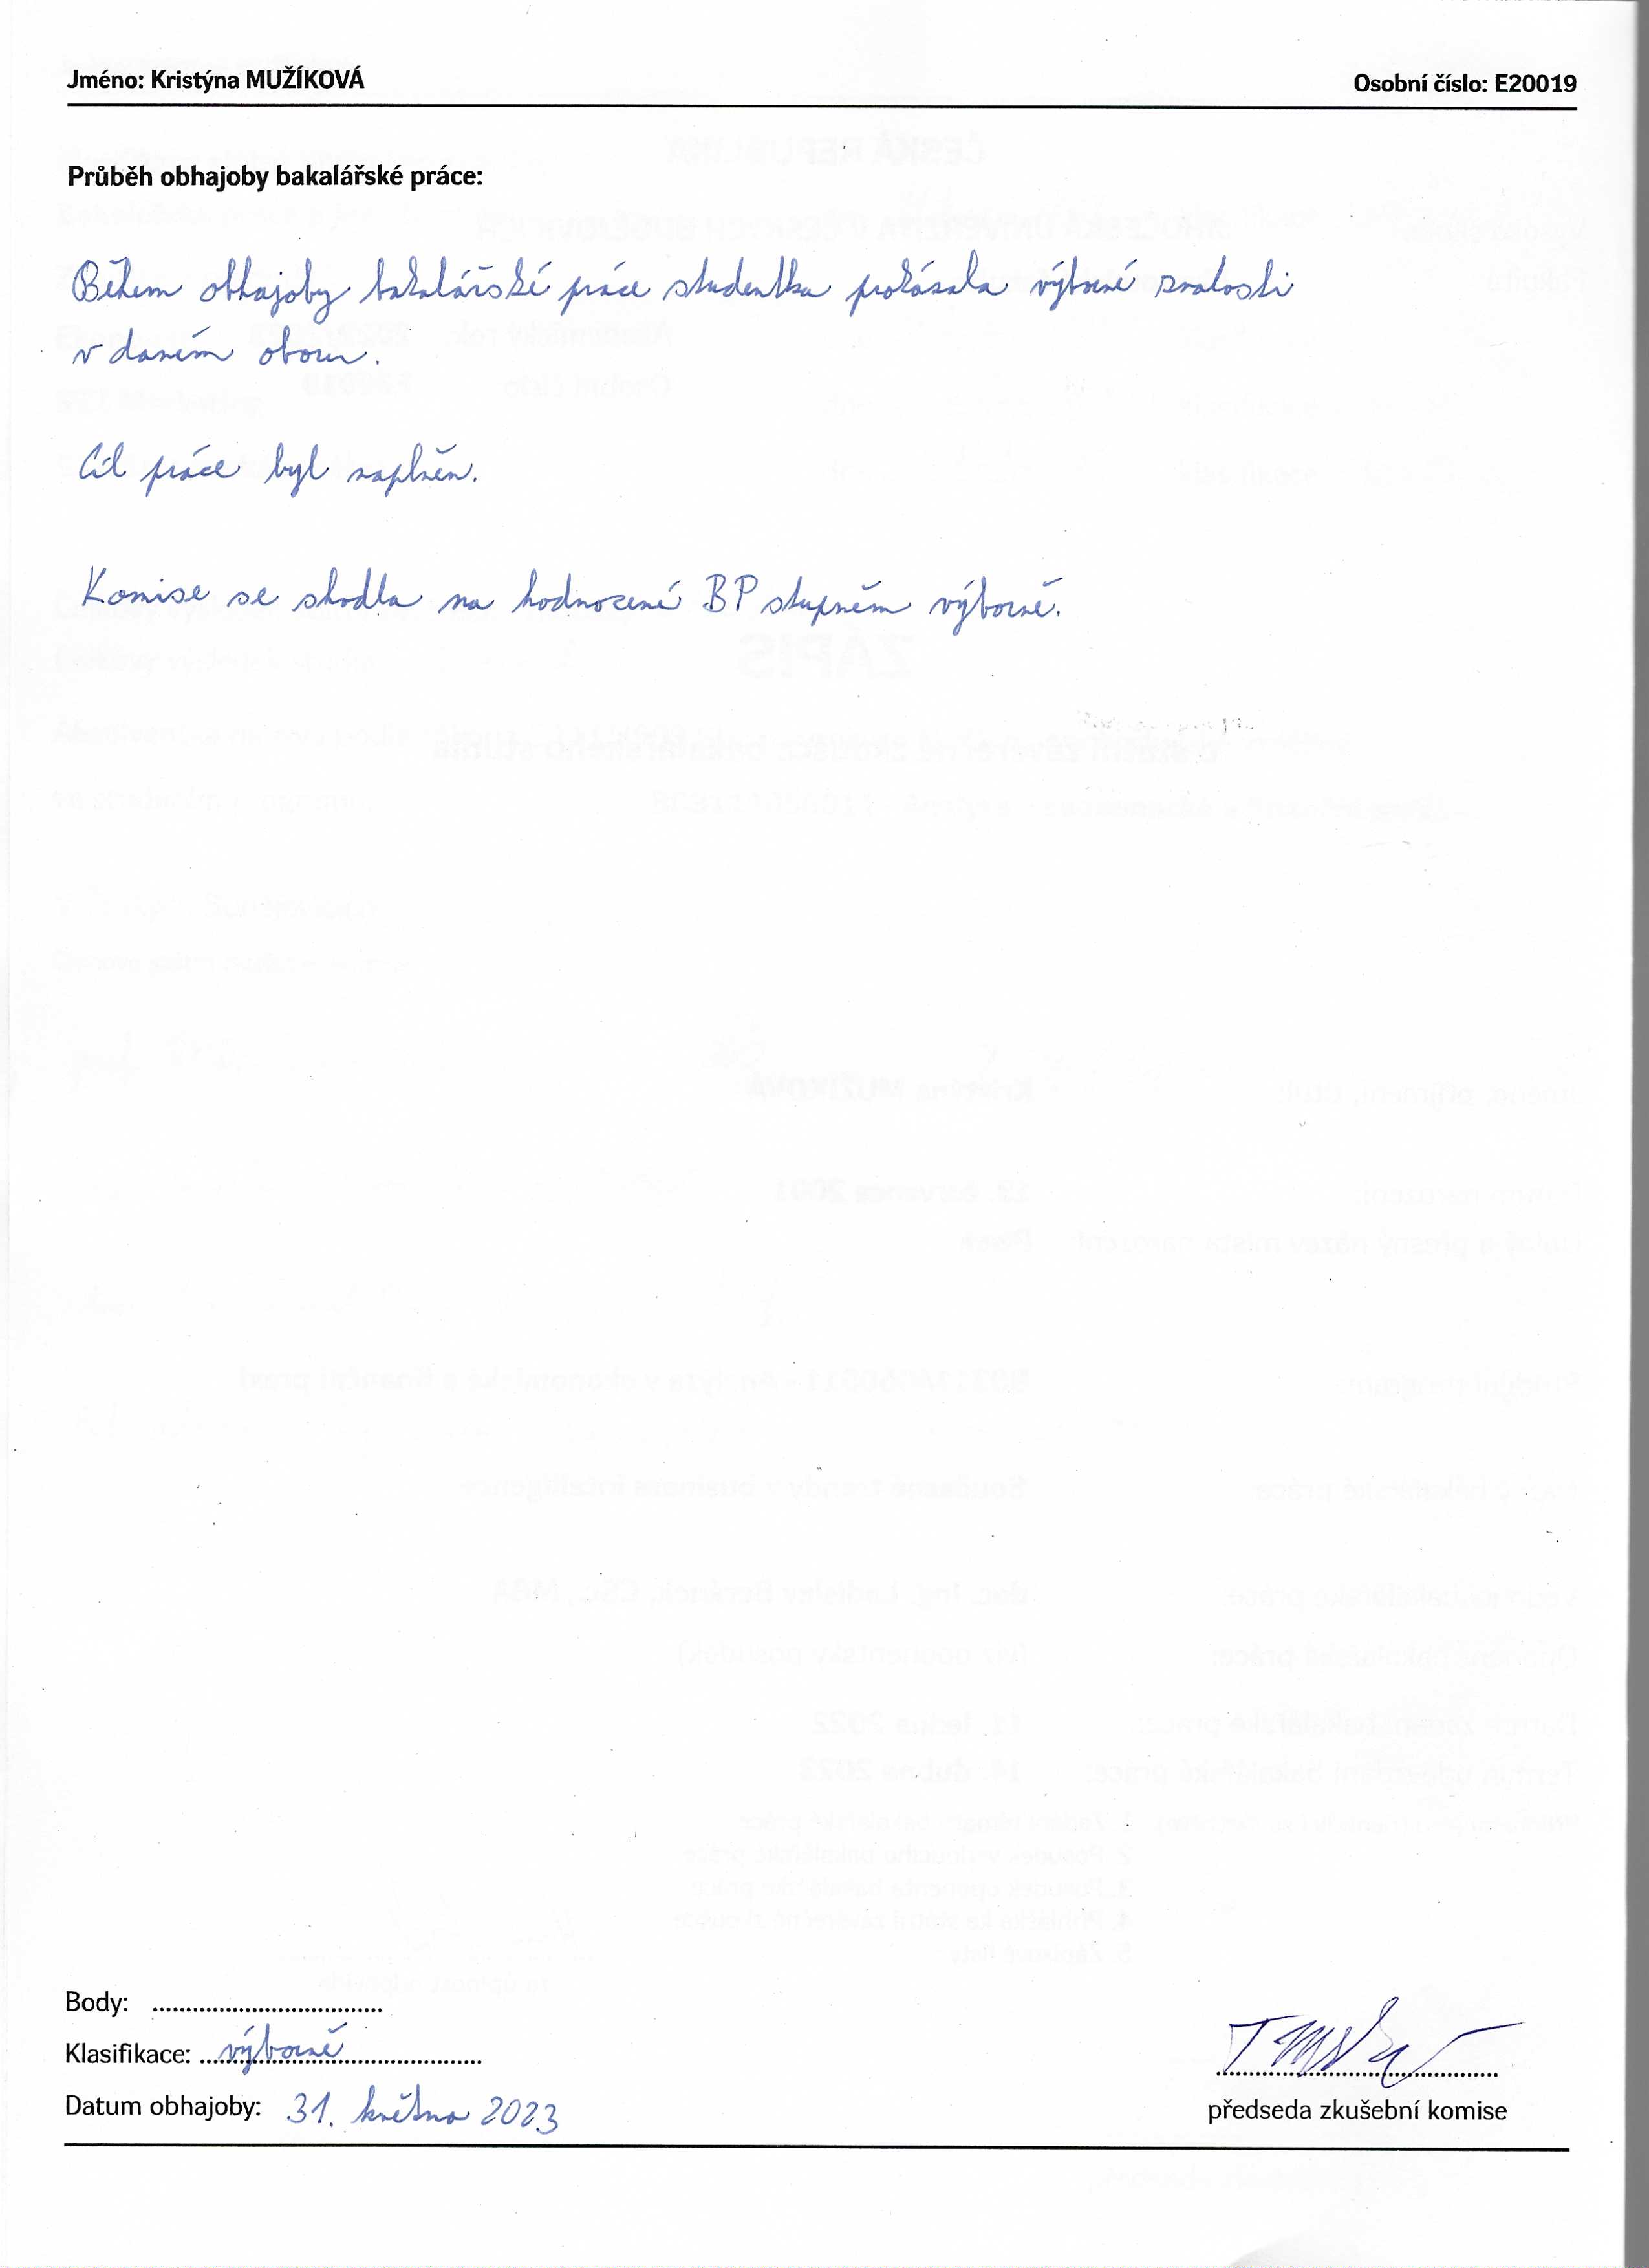 Jméno: Kristýna MUŽÍKOVÁ Osobní číslo: E20019
Průběh obhajoby bakalářské práce:
Během obhajoby bakalářské práce studentka prokázala výborné znalosti
v daném oboru.
Cíl práce byl naplněn.
Komise se shodla na hodnocení BP stupněm výborně.
Body: ..................................
Klasifikace: výborně
Datum obhajoby: 31. května 2023
předseda zkušební komise